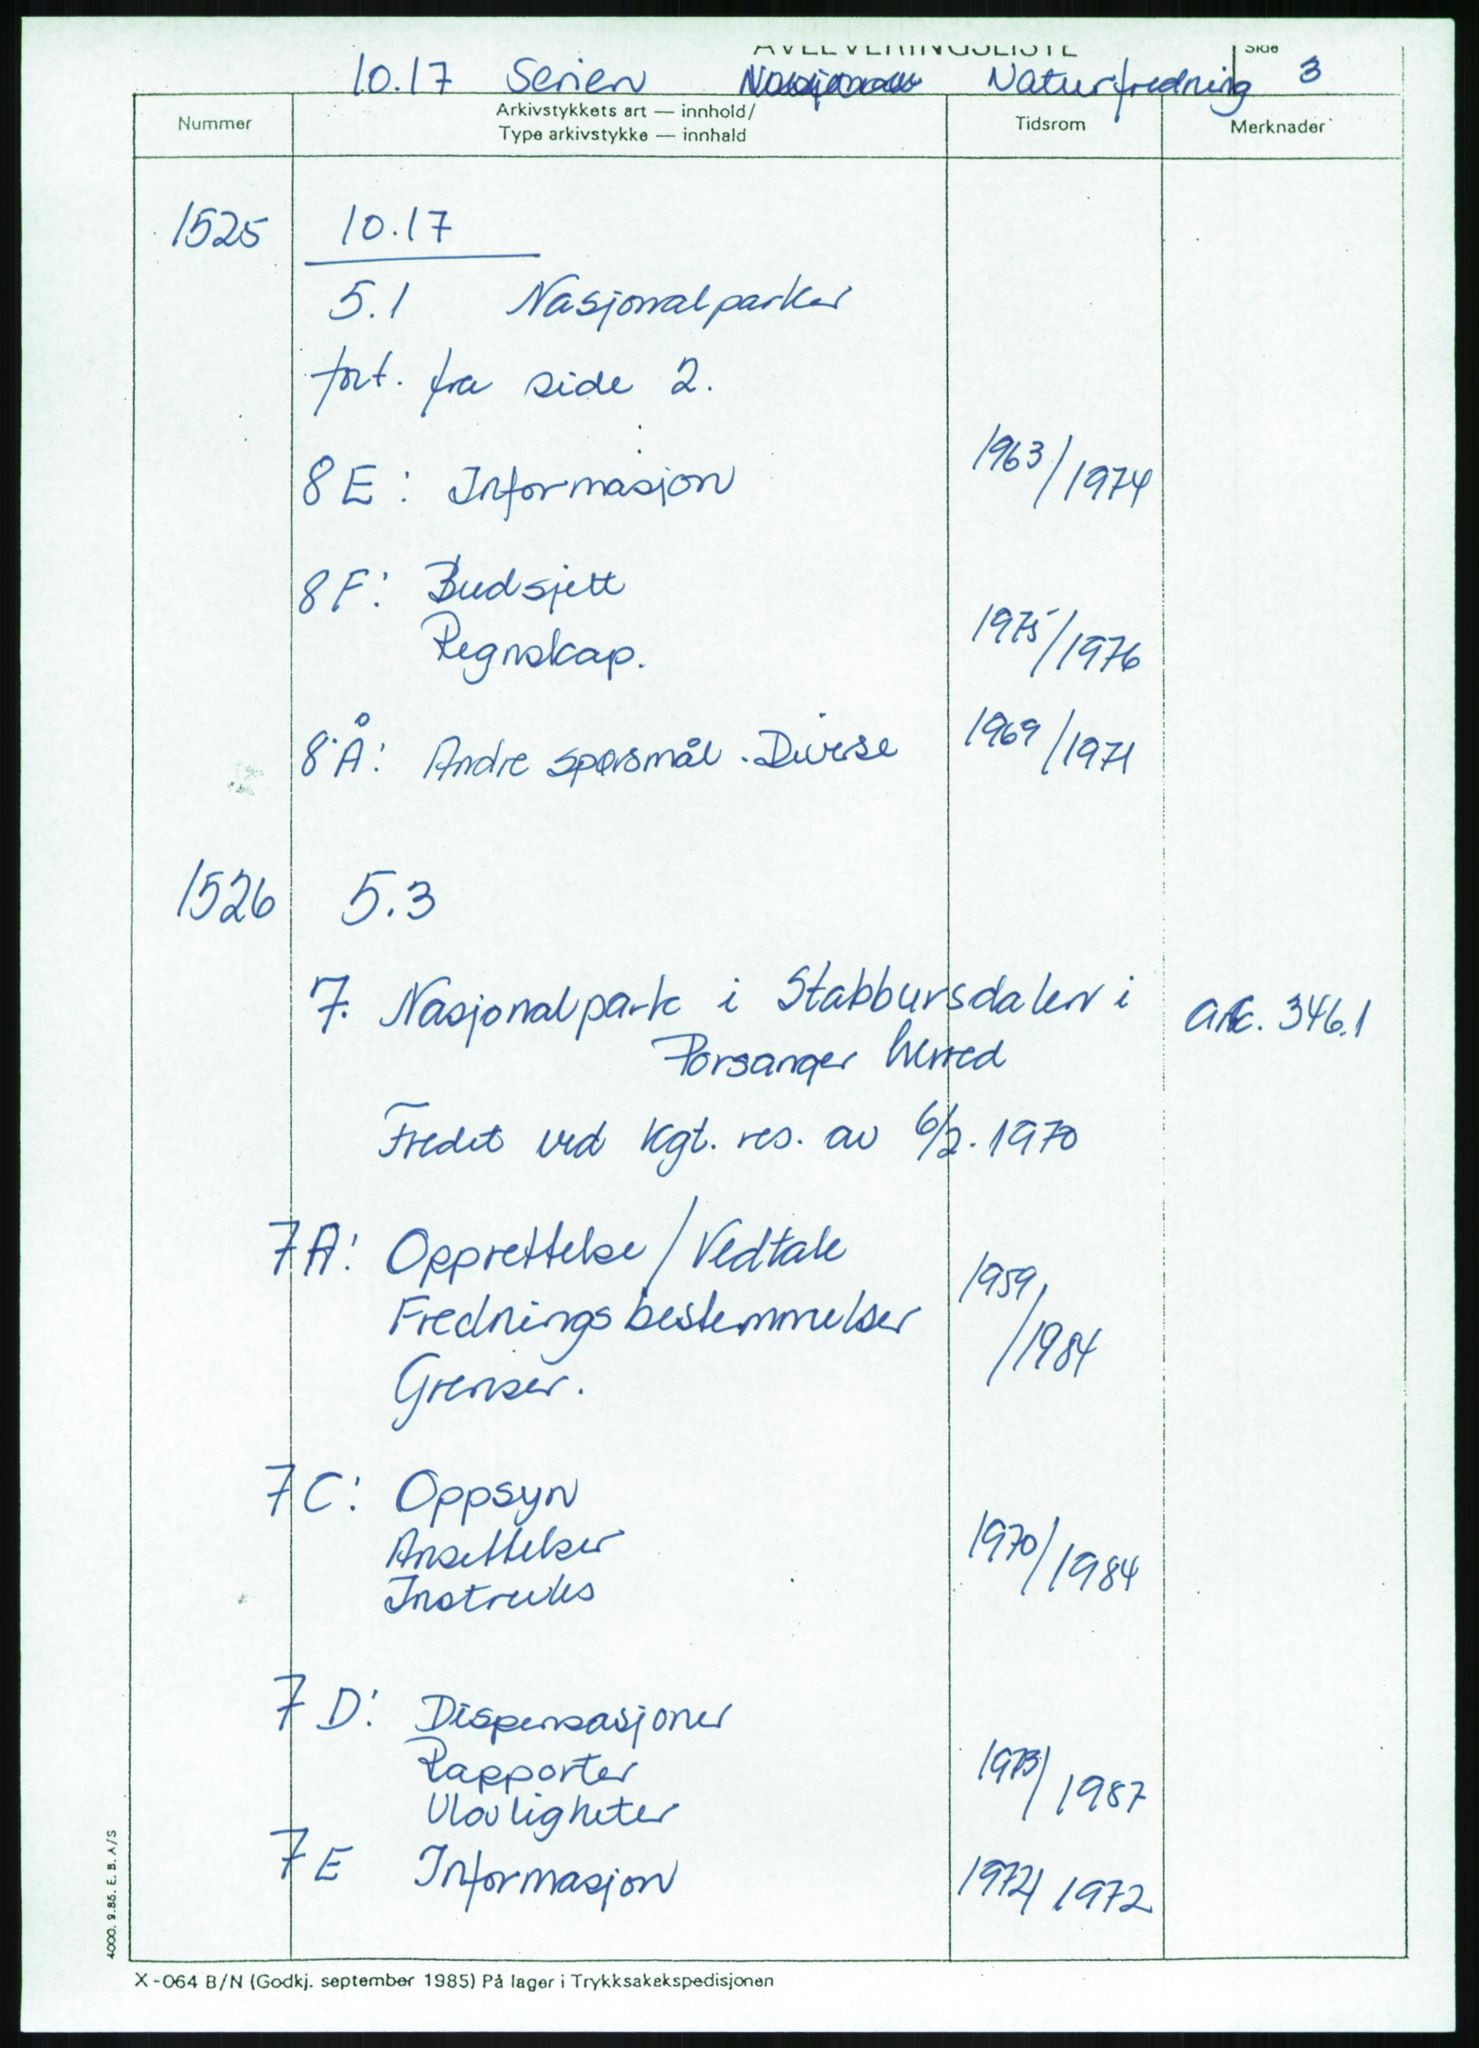 AVLEVERINGSLISTE Side
10.17 Serien Naturfredning 3
Nummer
Arkivstykkets art — innhold/
Type arkivstykke — innhald
Tidsrom
Merknader
1525 10.17
5.1 Nasjonalparker
fort. fra side 2.
8E: Informasjon 1963/1974
8F: Budsjett
Regnskap. 1975/1976
8Å: Andre spørsmål. Diverse 1969/1971
1526 5.3
7. Nasjonalpark i Stabbursdalen i ark. 346.1
Porsanger herred
Fredet ved kgt. res. av 6/2.1970
7A: Opprettelse/Vedtak
Fredningsbestemmelser 1959/1984
Grenser.
7C: Oppsyn
Ansettelser 1970/1984
Instruks
7D: Dispensasjoner
Rapporter 1973/1987
Ulovligheter
7E Informasjon 1972/1972
4000. 9.85. E. B. A/S
X-064 B/N (Godkj. september 1985) På lager i Trykksakekspedisjonen